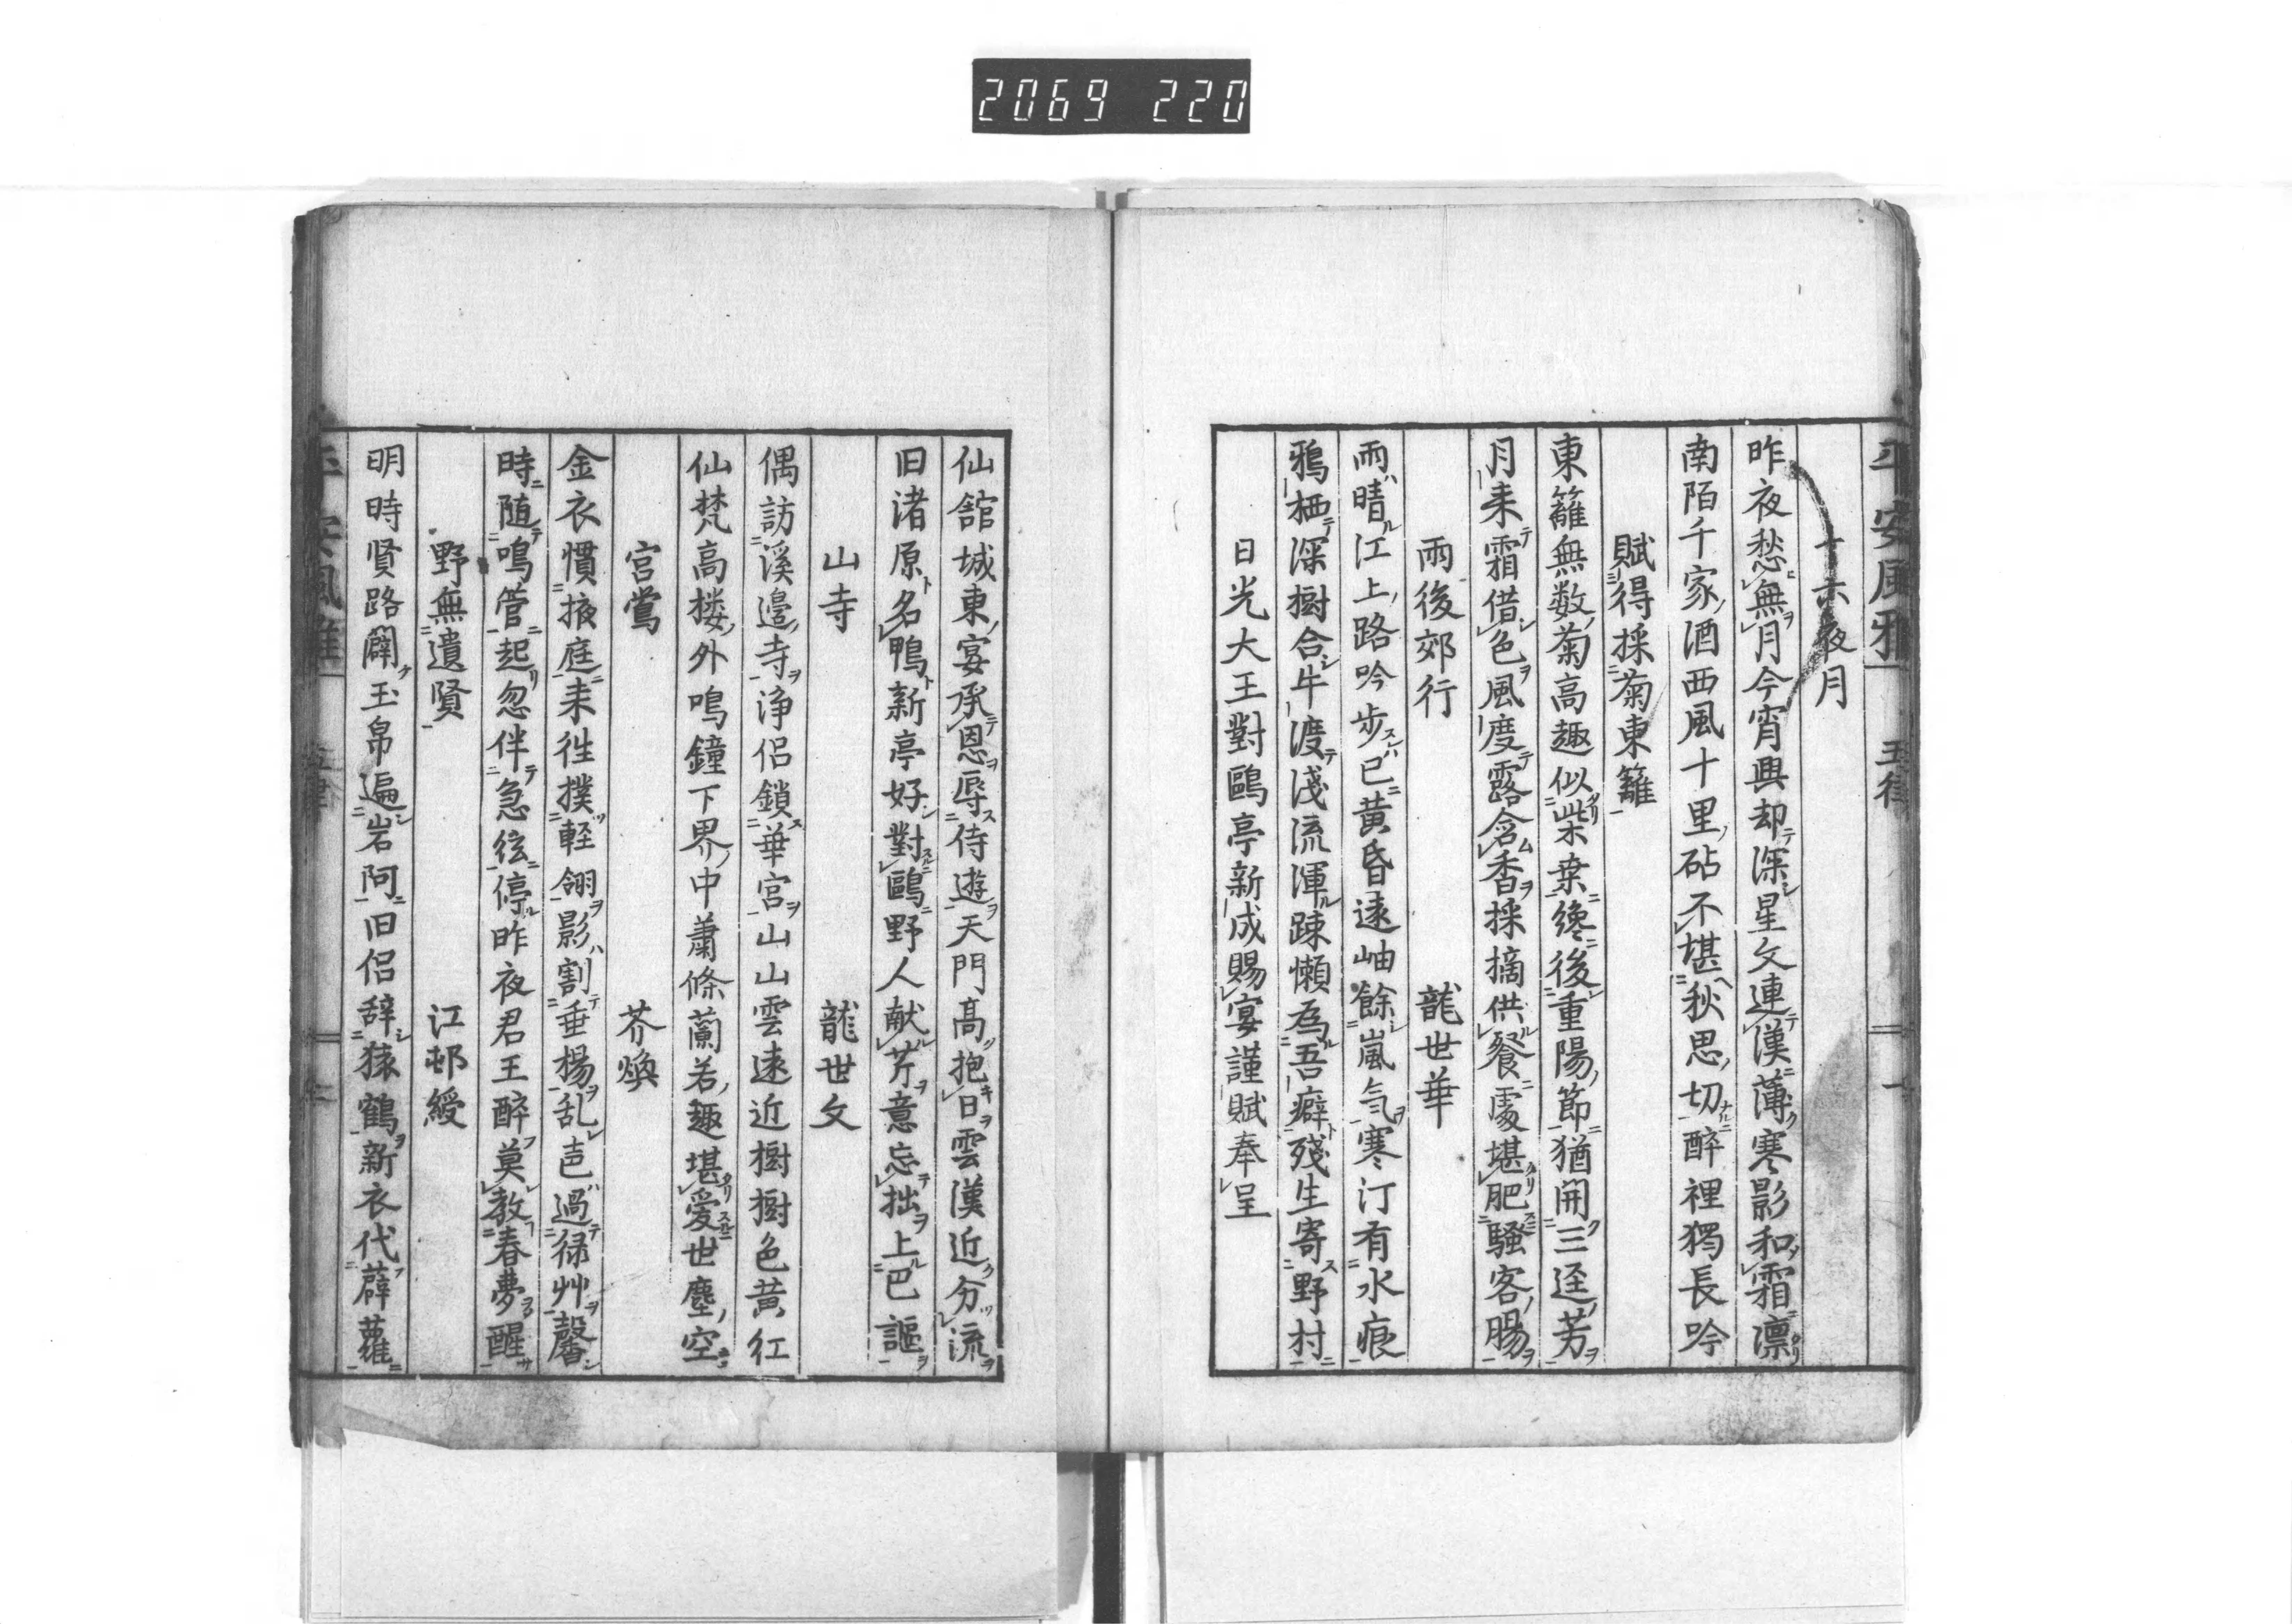 2069 220
平安風雅 五律
十六夜月
昨夜愁無月今宵興却深星文連漢薄寒影和霜凛
南陌千家酒西風十里砧不堪秋思切醉裡獨長吟
賦得採菊東籬
東籬無数菊高趣似柴桒纔後重陽節猶開三逕芳
月来霜借色風度露含香採摘供餐處堪肥騷客腸
雨後郊行 龍世華
雨晴江上路吟步已黃昏遠岫餘嵐気寒汀有水痕
鴉栖深樹合牛渡淺流渾踈懶為吾癖殘生寄野村
日光大王對鷗亭新成賜宴謹賦奉呈
仙舘城東宴承恩辱侍遊天門高抱日雲漢近分流
旧渚原名鴨新亭好對鷗野人献芹意忘拙上巴謳
山寺 龍世文
偶訪溪邉寺浄侶鎖華宮山山雲遠近樹樹色黃紅
仙梵高楼外鳴鐘下界中蕭條蘭若趣堪愛世塵空
宮鴬 芥煥
金衣慣掖庭来徃撲軽翎影割垂楊乱声過緑艸馨
時随鳴管起忽伴急絃停昨夜君王醉莫教春夢醒
野無遺賢 江邨綬
明時賢路闢玉帛遍岩阿旧侶辞猿鶴新衣代薜蘿
平安風雅 五律